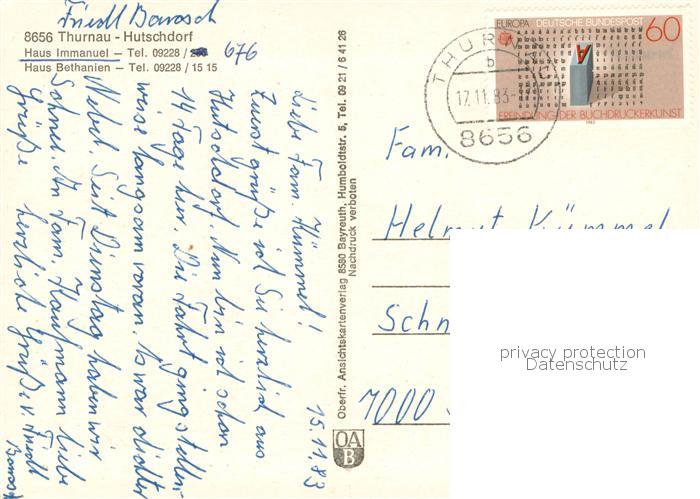 Friedl Barasch
8656 Thurnau - Hutschdorf
Haus Immanuel — Tel. 09228 / 676
Haus Bethanien - Tel. 09228 / 15 15
15.11.83
Liebe Fam. Kümmel!
Zuerst grüße ich Sie herzlich aus
Hutschdorf. Nun bin ich schon
14 Tage hier. Die Fahrt ging stellen-
weise langsam voran. Es war dichter
Nebel. Seit Dienstag haben wir
Schnee. An Fam. Kaufmann liebe
Grüße herzliche Grüße v. Friedl
Barasch
Oberfr. Ansichtskartenverlag 8580 Bayreuth, Humboldtstr. 5, Tel. 09 21 / 6 41 26
Nachdruck verboten
OA
B
EUROPA DEUTSCHE BUNDESPOST 60
A
ERFINDUNG DER BUCHDRUCKERKUNST
1983
THURNAU
b
17.11.83-
8656
Fam.
Helmut Kümmel
Schn
7000
privacy protection
Datenschutz